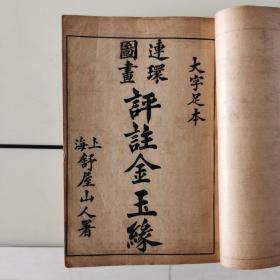 大字足本
連環
圖畫
評註金玉緣
上海
舒屋山人署